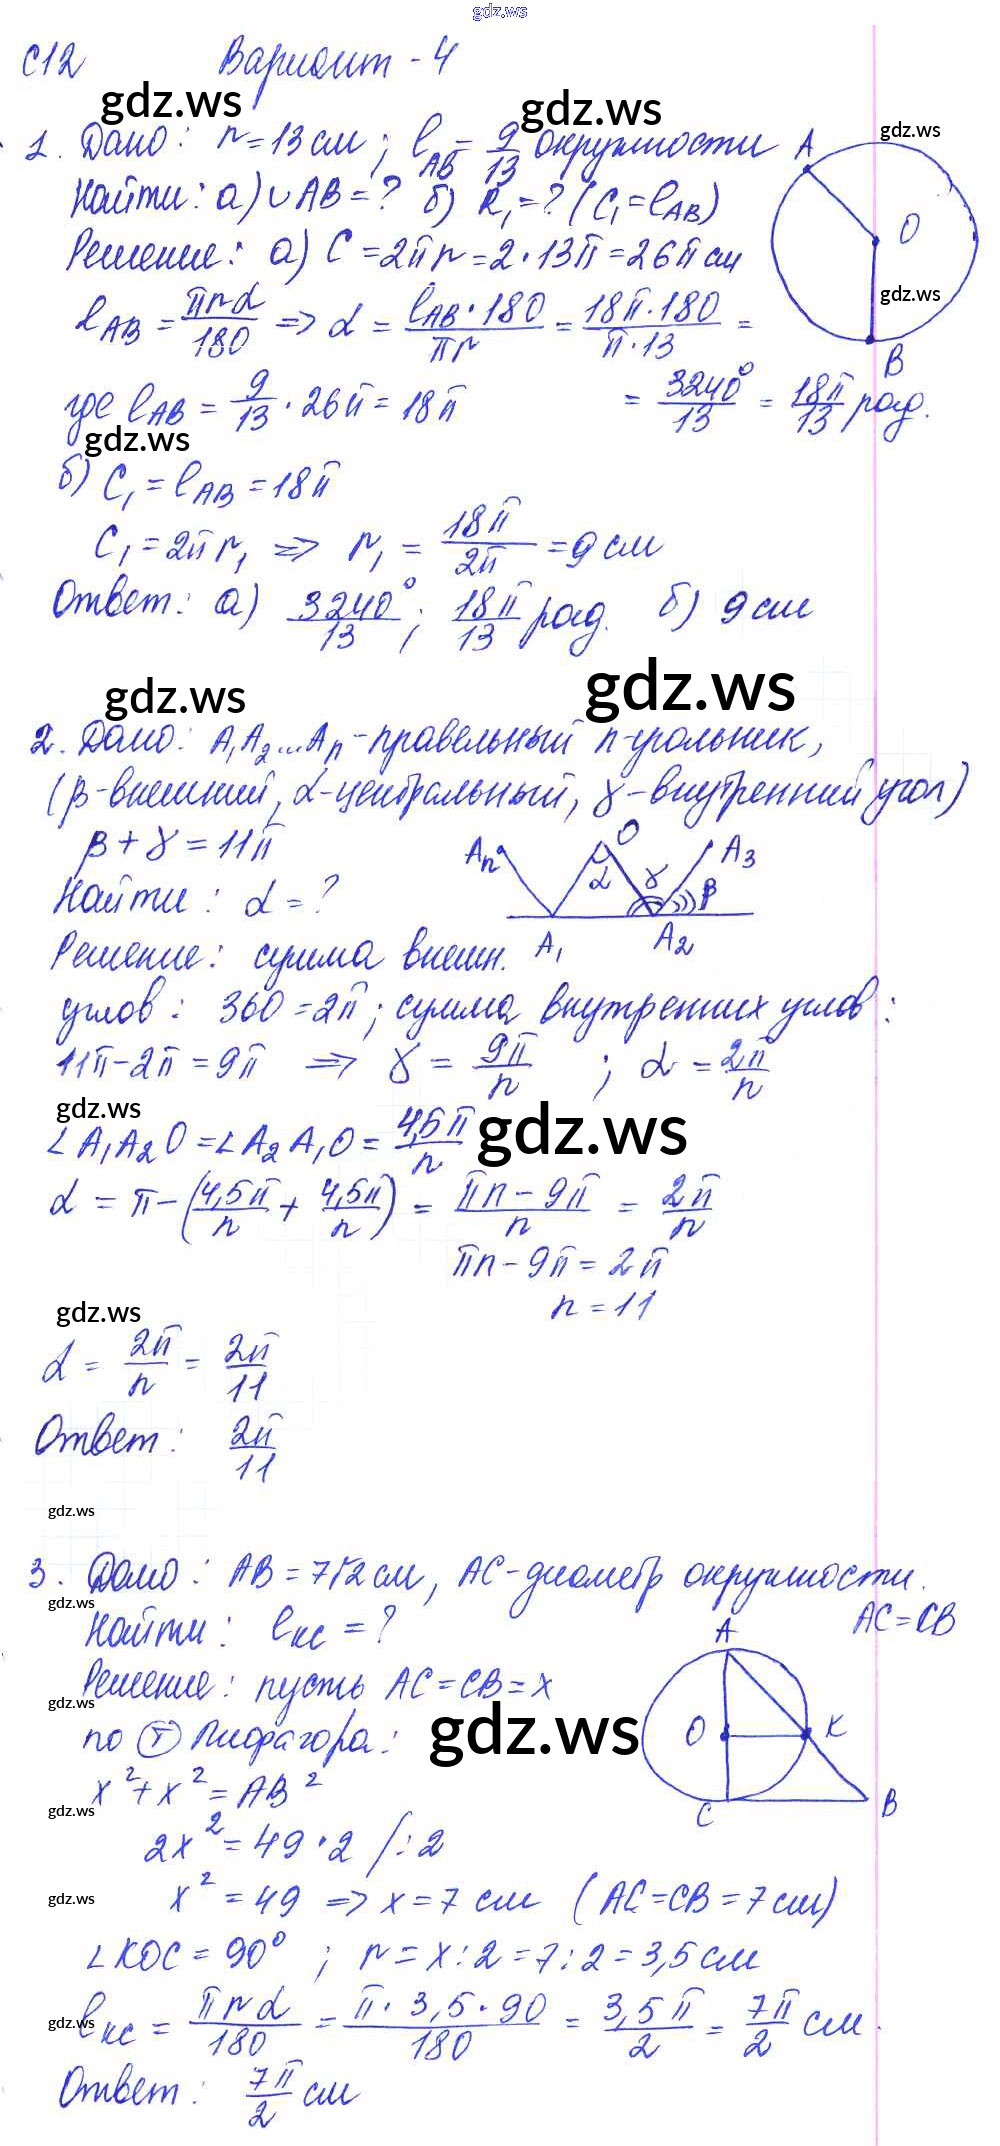 gdz.ws
С12 Вариант - 4
gdz.ws gdz.ws
1. Дано: r = 13 см; l_AB = 9/13 окружности
gdz.ws
A
Найти: а) ∪AB = ? б) R₁ = ? (C₁ = l_AB)
O
Решение: а) C = 2πr = 2·13π = 26π см
gdz.ws
l_AB = πrα/180 => α = l_AB·180/πr = 18π·180/π·13 =
B
где l_AB = 9/13 · 26π = 18π = 3240°/13 = 18π/13 рад.
gdz.ws
б) C₁ = l_AB = 18π
C₁ = 2πr₁ => r₁ = 18π/2π = 9 см
Ответ: а) 3240°/13; 18π/13 рад. б) 9 см
gdz.ws gdz.ws
2. Дано: A₁A₂...Aₙ - правельный n-угольник,
(β - внешний, α - центральный, γ - внутренний угол)
β + γ = 11π
Aₙ O α γ β A₃
Найти: α = ?
A₁ A₂
Решение: сумма внешн.
углов: 360 = 2π; сумма внутренних углов:
11π - 2π = 9π => γ = 9π/n ; α = 2π/n
gdz.ws
∠A₁A₂O = ∠A₂A₁O = 4,5π/n
gdz.ws
α = π - (4,5π/n + 4,5π/n) = πn - 9π/n = 2π/n
πn - 9π = 2π
n = 11
gdz.ws
α = 2π/n = 2π/11
Ответ: 2π/11
gdz.ws
3. Дано: AB = 7√2 см, AC - диаметр окружности.
gdz.ws
AC = CB
Найти: l_KC = ?
A
Решение: пусть AC = CB = x
gdz.ws
по Т Пифагора:
gdz.ws
O K
x² + x² = AB²
C B
gdz.ws
2x² = 49·2 /:2
x² = 49 => x = 7 см (AC = CB = 7 см)
gdz.ws
∠KOC = 90° ; r = x:2 = 7:2 = 3,5 см
l_KC = πrα/180 = π·3,5·90/180 = 3,5π/2 = 7π/2 см.
gdz.ws
Ответ: 7π/2 см